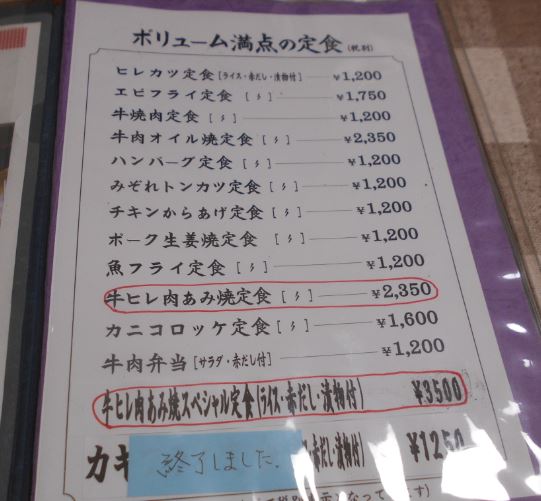 ボリューム満点の定食(税別)
ヒレカツ定食[ライス・赤だし・漬物付]¥1,200
エビフライ定食[〃]¥1,750
牛焼肉定食[〃]¥1,200
牛肉オイル焼定食[〃]¥2,350
ハンバーグ定食[〃]¥1,200
みぞれトンカツ定食[〃]¥1,200
チキンからあげ定食[〃]¥1,200
ポーク生姜焼定食[〃]¥1,200
魚フライ定食[〃]¥1,200
牛ヒレ肉あみ焼定食[〃]¥2,350
カニコロッケ定食[〃]¥1,600
牛肉弁当[サラダ・赤だし付]¥1,200
牛ヒレ肉あみ焼スペシャル定食[ライス・赤だし・漬物付]¥3500
カキ 終了しました. ス・赤だし・漬物付]¥1250
となっています)